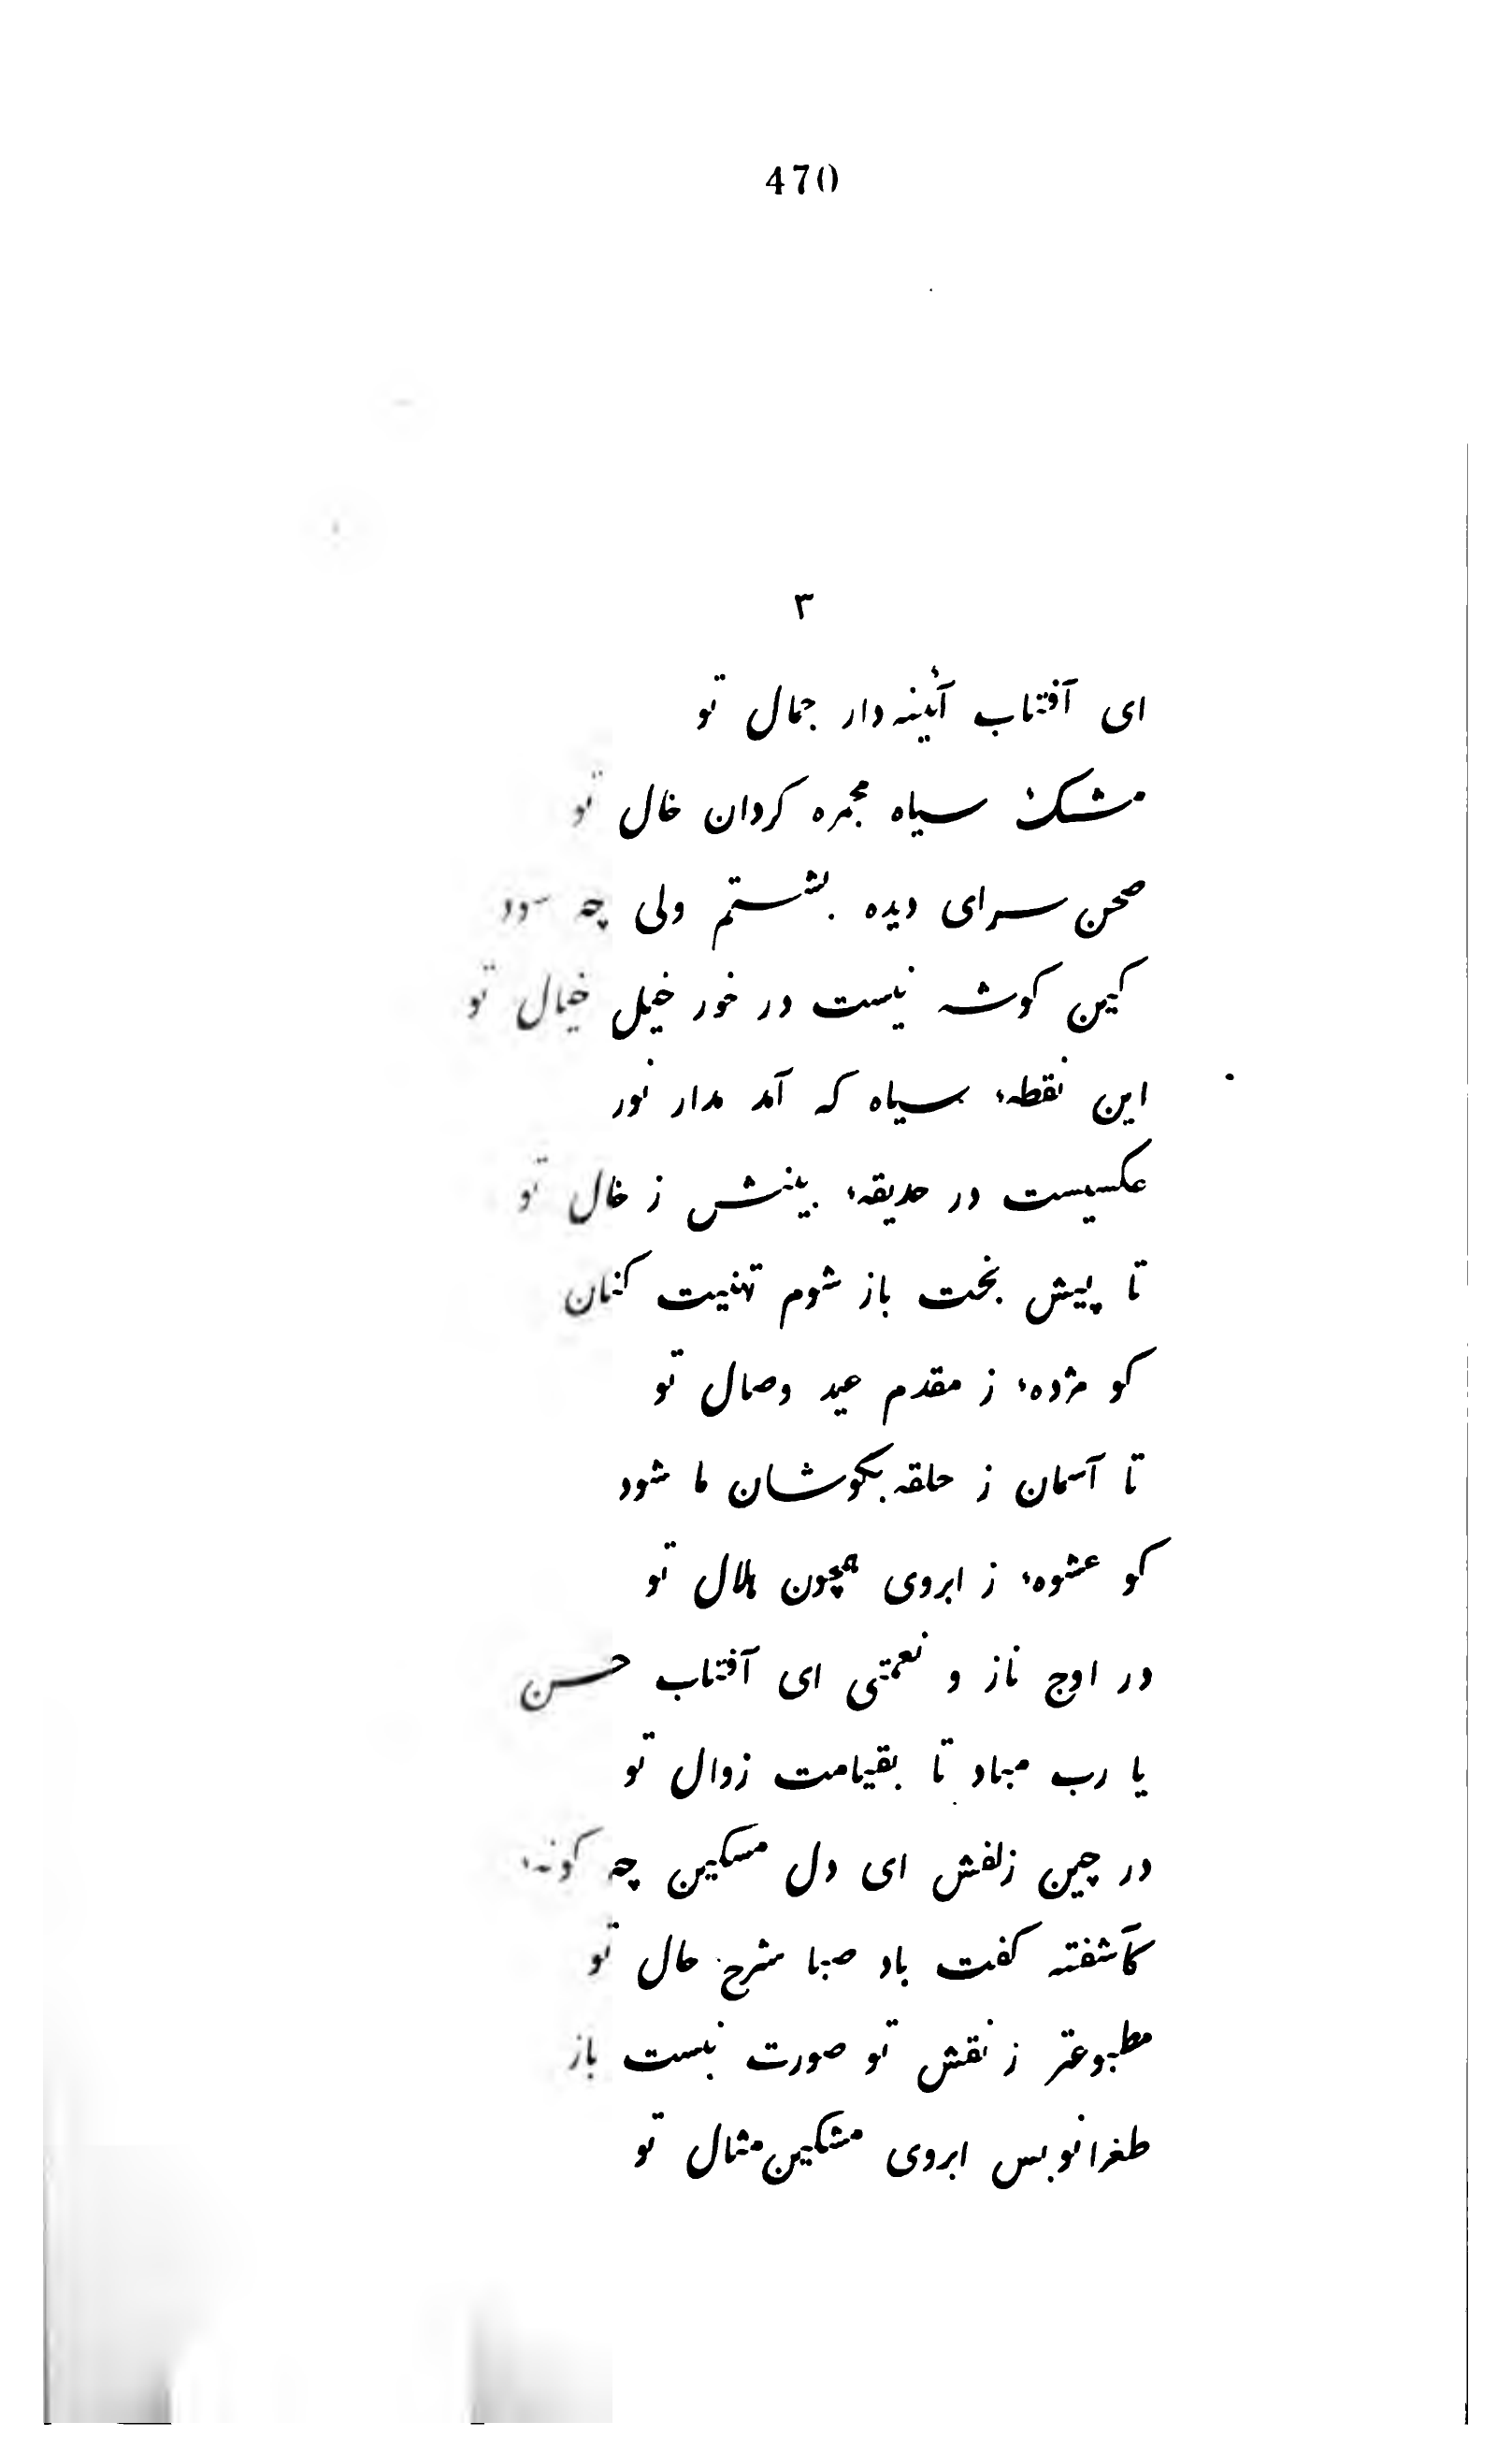 470
۳
ای آفتاب آئینه‌دار جمال تو
مشک سیاه مجمره کردان خال تو
صحن سرای دیده بشستم ولی چه سود
کین کوشه نیست در خور خیل خیال تو
این نقطهٔ سیاه که آمد مدار نور
عکسیست در حدیقهٔ بینش ز خال تو
تا پیش بخت باز شوم تهنیت کنان
کو مژدهٔ ز مقدم عید وصال تو
تا آسمان ز حلقه بکوشان ما شود
کو عشوهٔ ز ابروی همچون هلال تو
در اوج ناز و نعمتی ای آفتاب حسن
یا رب مباد تا بقیامت زوال تو
در چین زلفش ای دل مسکین چه کونهٔ
کآشفته کفت باد صبا شرح حال تو
مطبوعتر ز نقش تو صورت نبست باز
طغرانویس ابروی مشکین‌مثال تو